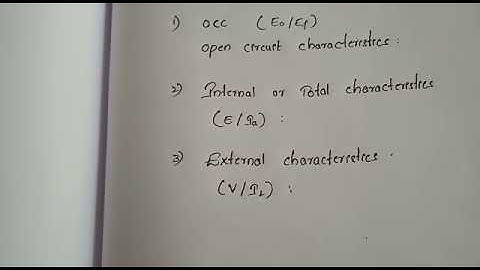 1) OCC (E₀/If)
Open circuit characteristics :
2) Internal or Total characteristics
(E/Ia) :
3) External characteristics .
(V/IL) :